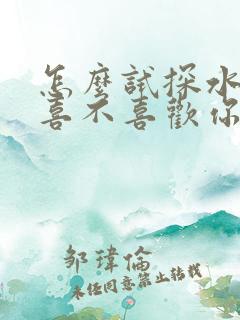 怎麼試探水
喜不喜歡你
邹瑋倫
未任同意禁止转载